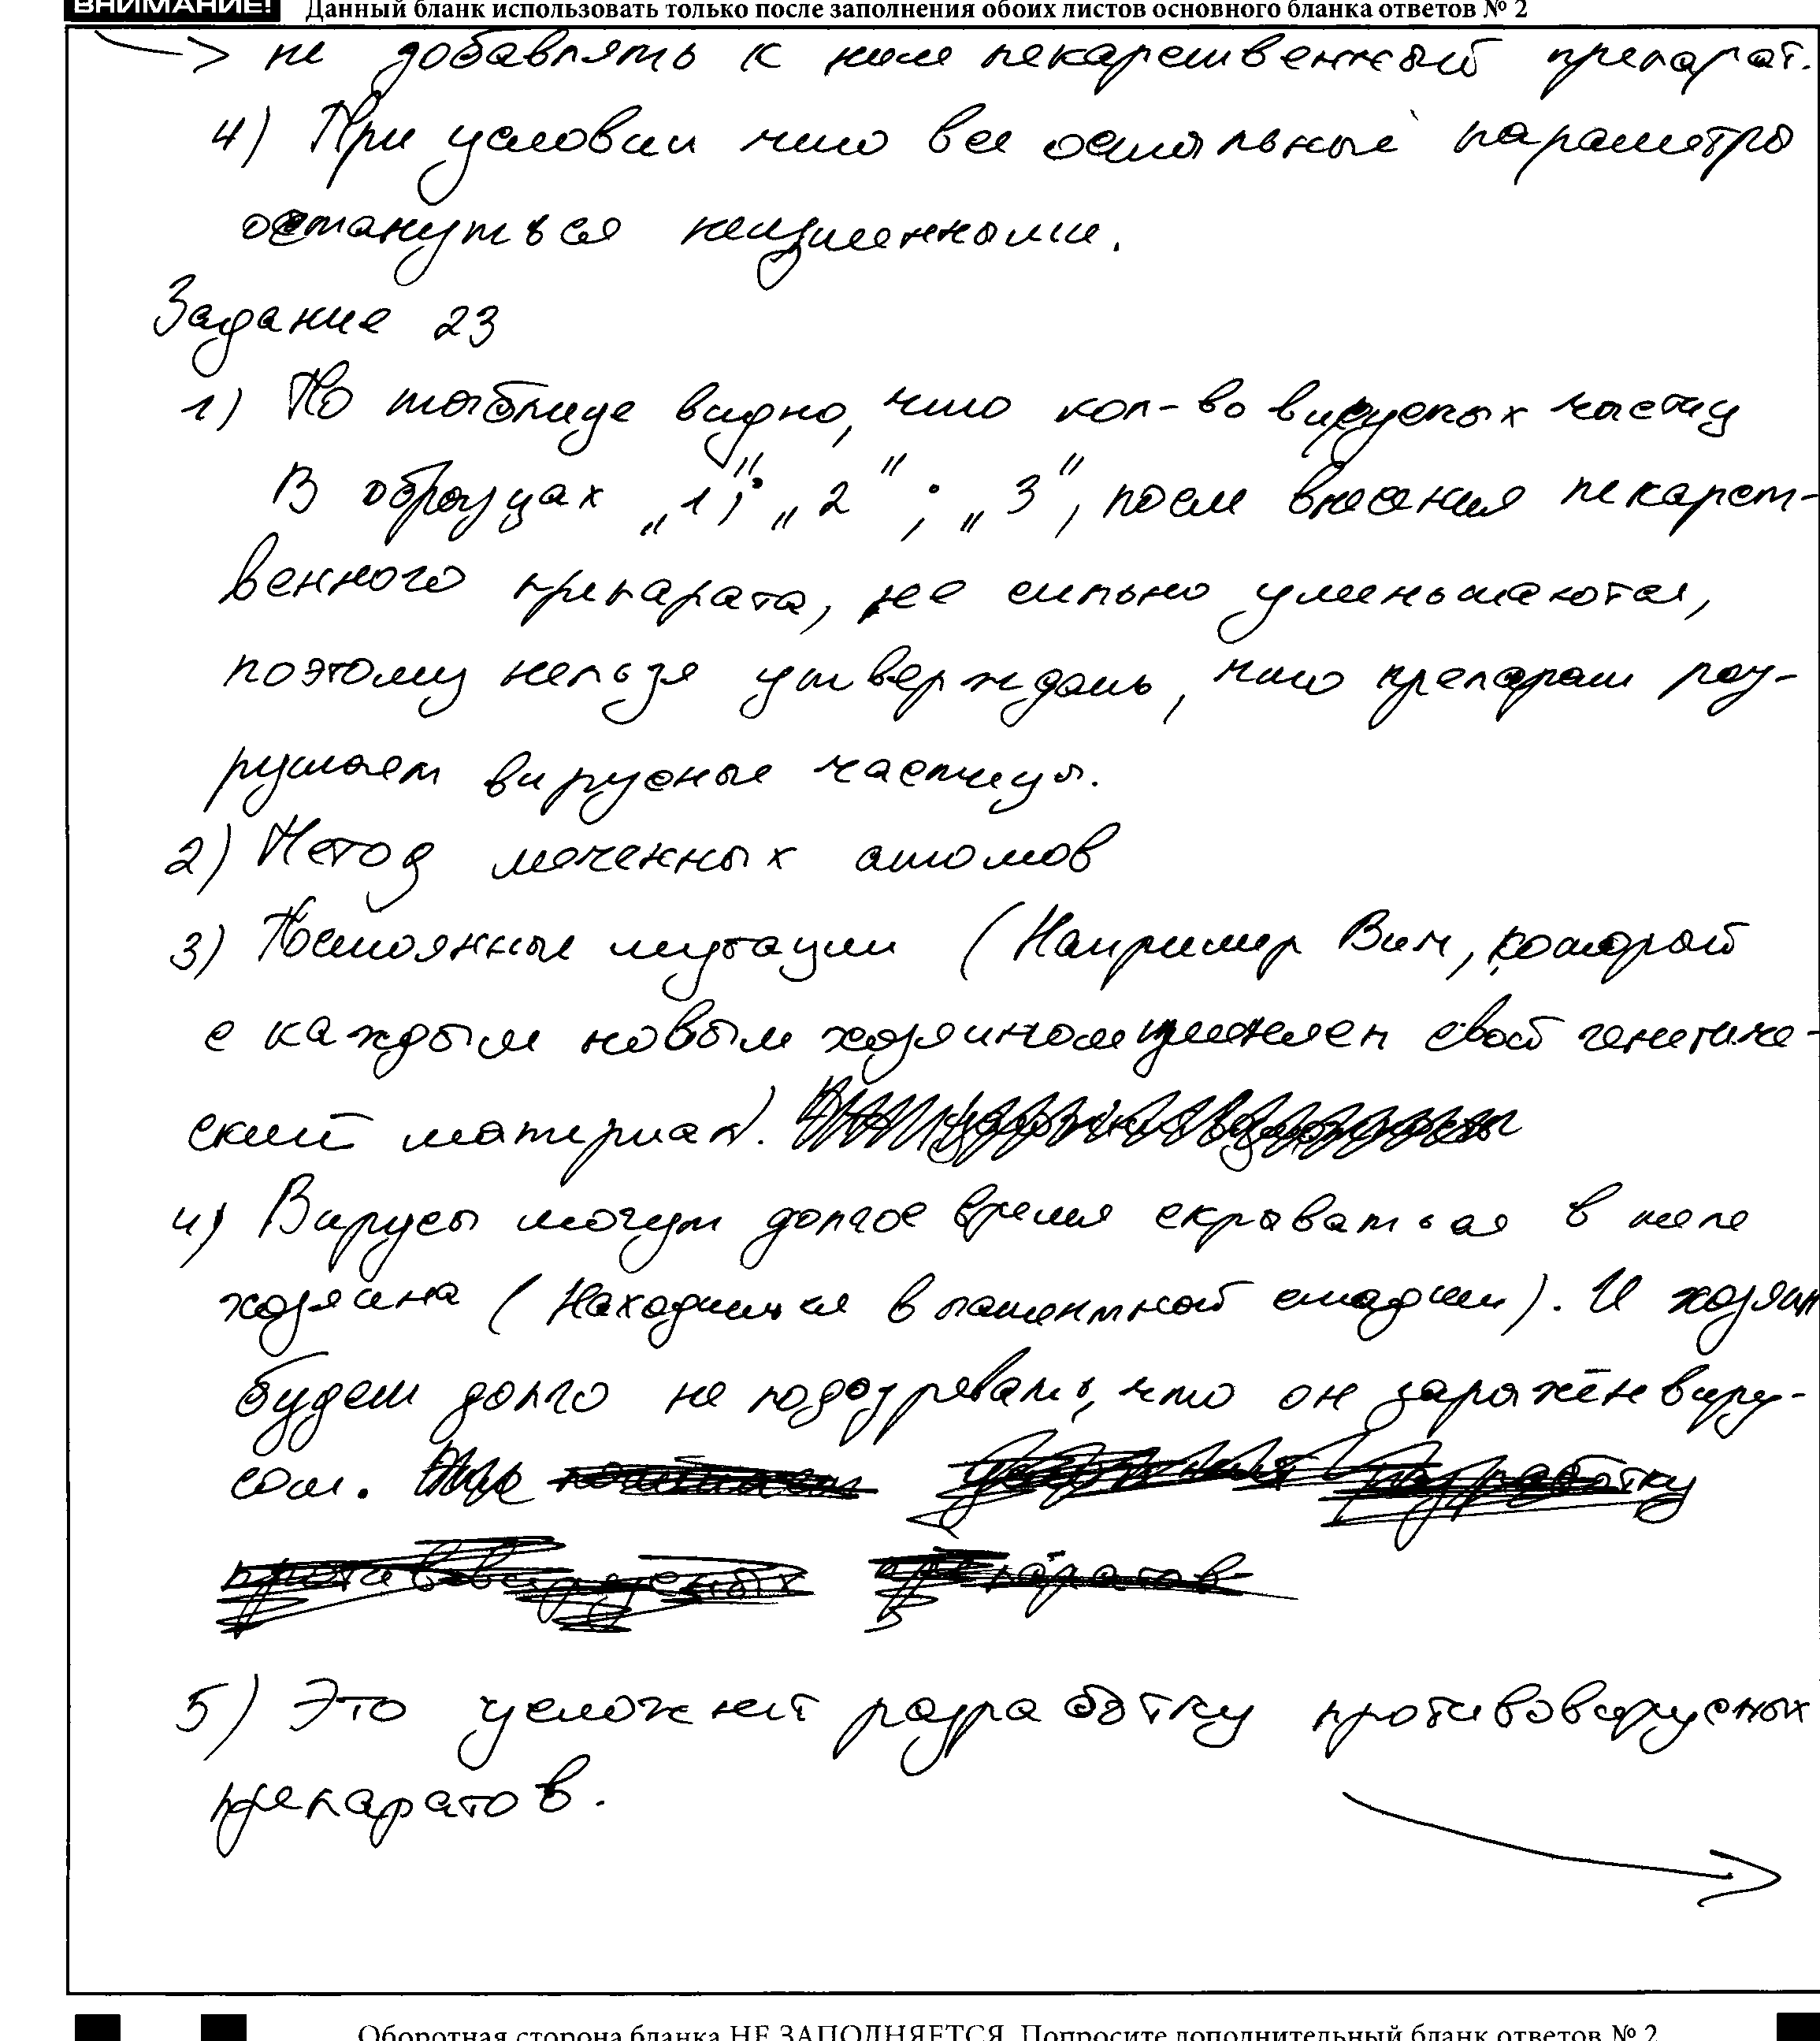 ВНИМАНИЕ! Данный бланк использовать только после заполнения обоих листов основного бланка ответов № 2
не добавлять к ним лекарственный препарат.
4) При условии что все остальные параметры
остануться неизменными.
Задание 23
1) По таблице видно, что кол-во вирусных частиц
В образцах „1”; „2”; „3”, после внесения лекарст-
венного препарата, не сильно уменьшаются,
поэтому нельзя утверждать, что препарат раз-
рушает вирусные частицы.
2) Метод меченных атомов
3) Постоянные мутации (Например Вич, который
с каждым новым хозяином изменяет свой генетиче-
ский материал).
4) Вирусы могут долгое время скрываться в теле
хозяина (Находиться в латентной стадии). И хозяин
будет долго не подозревать, что он заражён виру-
сом.
5) Это усложнит разработку противовирусных
препаратов.
Оборотная сторона бланка НЕ ЗАПОЛНЯЕТСЯ. Попросите дополнительный бланк ответов № 2